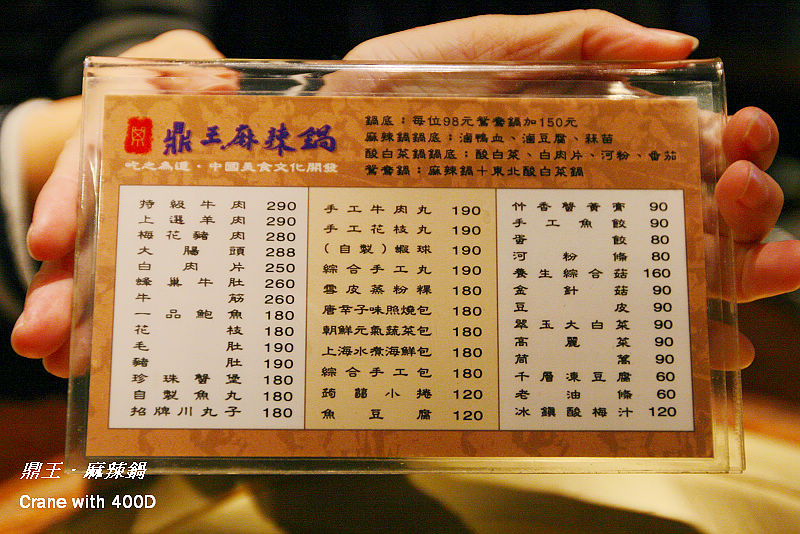 鼎王麻辣鍋
吃之為道・中國美食文化開發
鍋底：每位98元鴛鴦鍋加150元
麻辣鍋鍋底：滷鴨血、滷豆腐、蒜苗
酸白菜鍋鍋底：酸白菜、白肉片、河粉、番茄
鴛鴦鍋：麻辣鍋＋東北酸白菜鍋
特級牛肉 290
上選羊肉 290
梅花豬肉 280
大腸頭 288
白肉片 250
蜂巢牛肚 260
牛筋 260
一品鮑魚 180
花枝 180
毛肚 190
豬肚 190
珍珠蟹堡 180
自製魚丸 180
招牌川丸子 180
手工牛肉丸 190
手工花枝丸 190
(自製)蝦球 190
綜合手工丸 190
雲皮蒸粉粿 180
唐辛子味照燒包 180
朝鮮元氣蔬菜包 180
上海水煮海鮮包 180
綜合手工包 180
蒟蒻小捲 120
魚豆腐 120
竹香蟹黃膏 90
手工魚餃 90
蛋餃 80
河粉條 80
養生綜合菇 160
金針菇 90
豆皮 90
翠玉大白菜 90
高麗菜 90
茼蒿 90
千層凍豆腐 60
老油條 60
冰鎮酸梅汁 120
鼎王・麻辣鍋
Crane with 400D